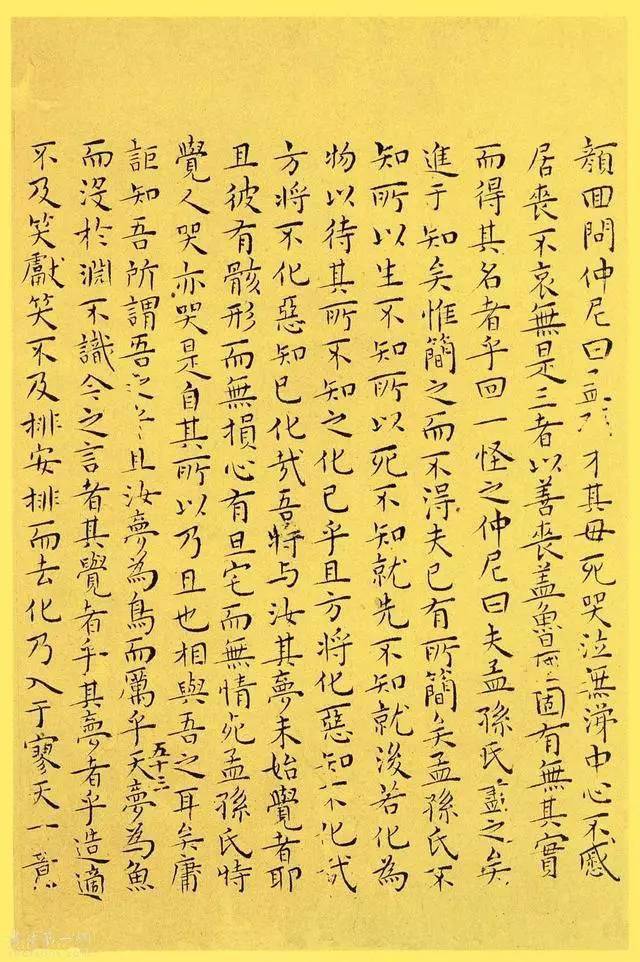 顏回問仲尼曰孟孫才其母死哭泣無涕中心不慼
居喪不哀無是三者以善喪盖魯國固有無其實
而得其名者乎回一怪之仲尼曰夫孟孫氏盡之矣
進于知矣惟簡之而不得夫已有所簡矣孟孫氏不
知所以生不知所以死不知就先不知就後若化為
物以待其所不知之化已乎且方將化惡知不化哉
方將不化惡知已化哉吾特与汝其夢未始覺者耶
且彼有骸形而無損心有旦宅而無情死孟孫氏特
覺人哭亦哭是自其所以乃且也相與吾之耳矣庸
詎知吾所謂吾之乎且汝夢為鳥而厲乎天夢為魚
五十三
而沒於淵不識今之言者其覺者乎其夢者乎造適
不及笑獻笑不及排安排而去化乃入于寥天一意